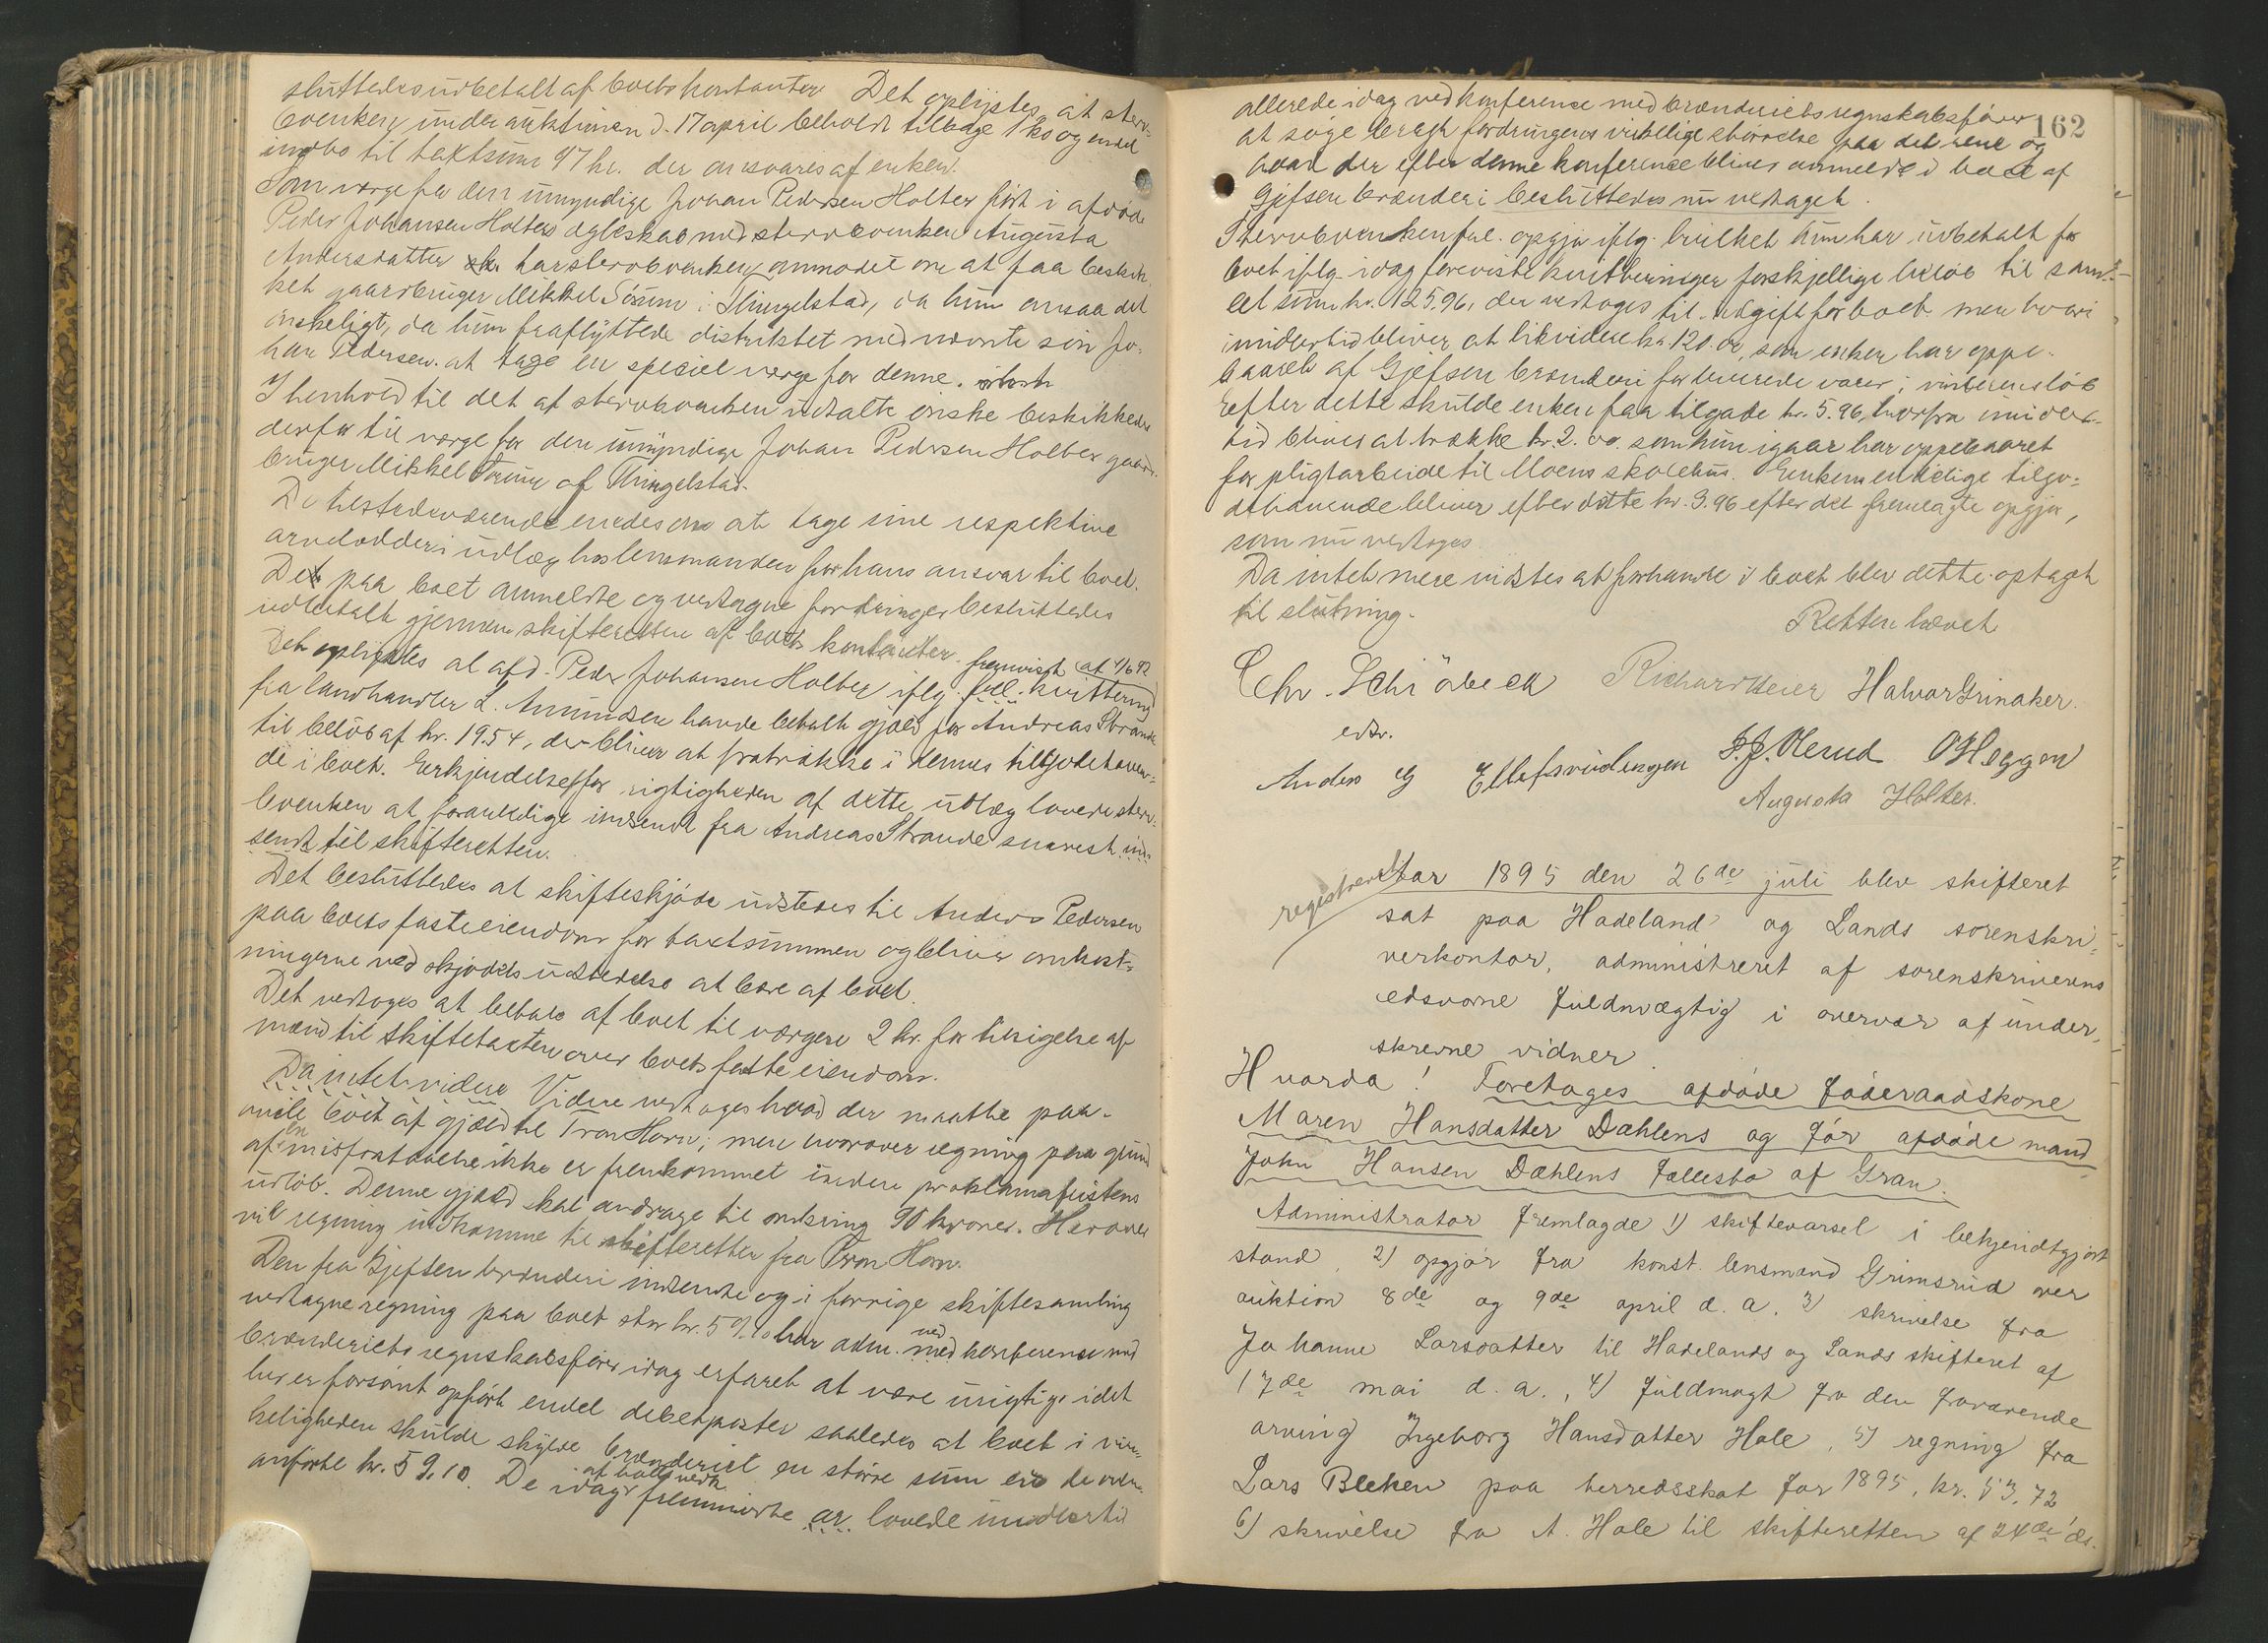 sluttedes udbetalt af boets kontanter. Det oplystes, at sterv-
boenken under auktionen d. 17 april beholdt tilbage 1 ko og endel
indbo til taktsum 97 kr. der ansvares af enken.
Som verge for den umyndige Johan Pedersen Holter født i afdøde
Peder Johansen Holters egteskab med stervboenken Augusta
Andersdatter har stervboenken anmodet om at faa beskik-
ket gaardbruger Mikkel Sørum i Thingelstad, da hun ansaa det
ønskeligt, da hun fraflyttede distriktet med nævnte søn Jo-
han Pedersen at tage en speciel verge for denne.
I henhold til det af stervboenken udtalte ønske beskikkedes
derfor til verge for den umyndige Johan Pedersen Holter gaard-
bruger Mikkel Sørum af Thingelstad.
De tilstedeværende enedes om at tage sine respektive
arvelodder i udlæg hos lensmanden for hans ansvar til boet.
De paa boet anmeldte og vedtagne fordringer besluttedes
udbetalt gjennem skifteretten af boets kontanter.
Det oplystes at afd. Peder Johansen Holter iflg. fremvist kvittering af 4/6 92
fra landhandler L. Amundsen havde betalt gjæld for Andreas Strande
til beløb af kr. 19.54, der bliver at fratrække i dennes tilgodehaven-
de i boet. Erkjendelse for rigtigheden af dette udlæg lovede sterv-
boenken at foranledige indsendt fra Andreas Strande snarest ind-
sendt til skifteretten.
Det besluttedes at skifteskjøde udstedes til Anders Pedersen
paa boets faste eiendom for taxtsummen og bliver omkost-
ningerne ved skjødets udstedelse at bære af boet.
Det vedtoges at betale af boet til vergen 2 kr. for tilsigelse af
mænd til skiftetaxten over boets faste eiendom.
Da intet videre Videre vedtoges hvad der maatte paa-
hvile boet af gjæld til Tron Horn, men hvorover regning paa grund
af en misforstaaelse ikke er fremkommet inden proklamafristens
udløb. Denne gjæld skal andrage til omkring 90 kroner. Herover
vil regning indkomme til skifteretten fra Tron Horn.
Den fra Gjefsen brænderi indsendte og i forrige skiftesamling
vedtagne regning paa boet stor kr. 59.10 har adm. ved med konference med
brænderiets regnskabsfører idag erfaret at være urigtig idet
der er forsømt opført endel debetposter saaledes at boet i vir-
keligheden skulde skylde brænderiet en større sum end de oven-
anførte kr. 59.10. De idag af boets vedk. fremmødte ar. lovede imidlertid
162
allerede idag ved konference med brænderiets regnskabsfører
at søge bragt fordringens virkelige størrelse paa det rene og
hvad der efter denne konference bliver anmeldt i boet af
Gjefsen brænderi besluttedes nu vedtaget.
Stervboenken frl. opgjør iflg. hvilket hun har udbetalt for
boet iflg. idag foreviste kvitteringer forskjellige beløb til sam-
let sum kr. 125.96, der vedtoges til udgift for boet men hvori
imidlertid bliver at likvidere kr. 120.00, som enken har oppe-
baaret af Gjefsen brænderi for leverede varer i vinterens løb
Efter dette skulde enken faa tilgode kr. 5.96, hvorfra imidler-
tid bliver at trække kr. 2.00 som hun igaar har oppebaaret
for pligtarbeide til Moens skolehus. Enkens endelige tilgo-
dehavende bliver efter dette kr. 3.96 efter det fremlagte opgjør,
som nu vedtoges.
Da intet mere vidstes at forhandle i boet blev dette optaget
til slutning.
Retten hævet
Chr. Schiøbeck Richard Beier Halvor Grinaker.
edsv.
Anders G Ellefsrudengen P. J. Olerud O Heggen
Augusta Holter.
registreret
Aar 1895 den 26de juli blev skifteret
sat paa Hadeland og Lands sorenskri-
verkontor, administreret af sorenskriverens
edsvorne fuldmægtig i overvær af under-
skrevne vidner.
Hvorda! Foretages afdøde føderaadskone
Maren Hansdatter Dæhlens og før afdøde mand
John Hansen Dæhlens fællesbo af Gran.
Administrator fremlagde 1) skiftevarsel i bekjendtgjort
stand, 2) opgjør fra konst. lensmand Grimsrud over
auktion 8de og 9de april d. a. 3) skrivelse fra
Johanne Larsdatter til Hadelands og Lands skifteret af
17de mai d. a., 4) fuldmagt fra den fraværende
arving Ingeborg Hansdatter Hole, 5) regning fra
Lars Bleken paa herredsskat for 1895, kr. 53,72
6) skrivelse fra A. Hole til skifteretten af 24de ds.